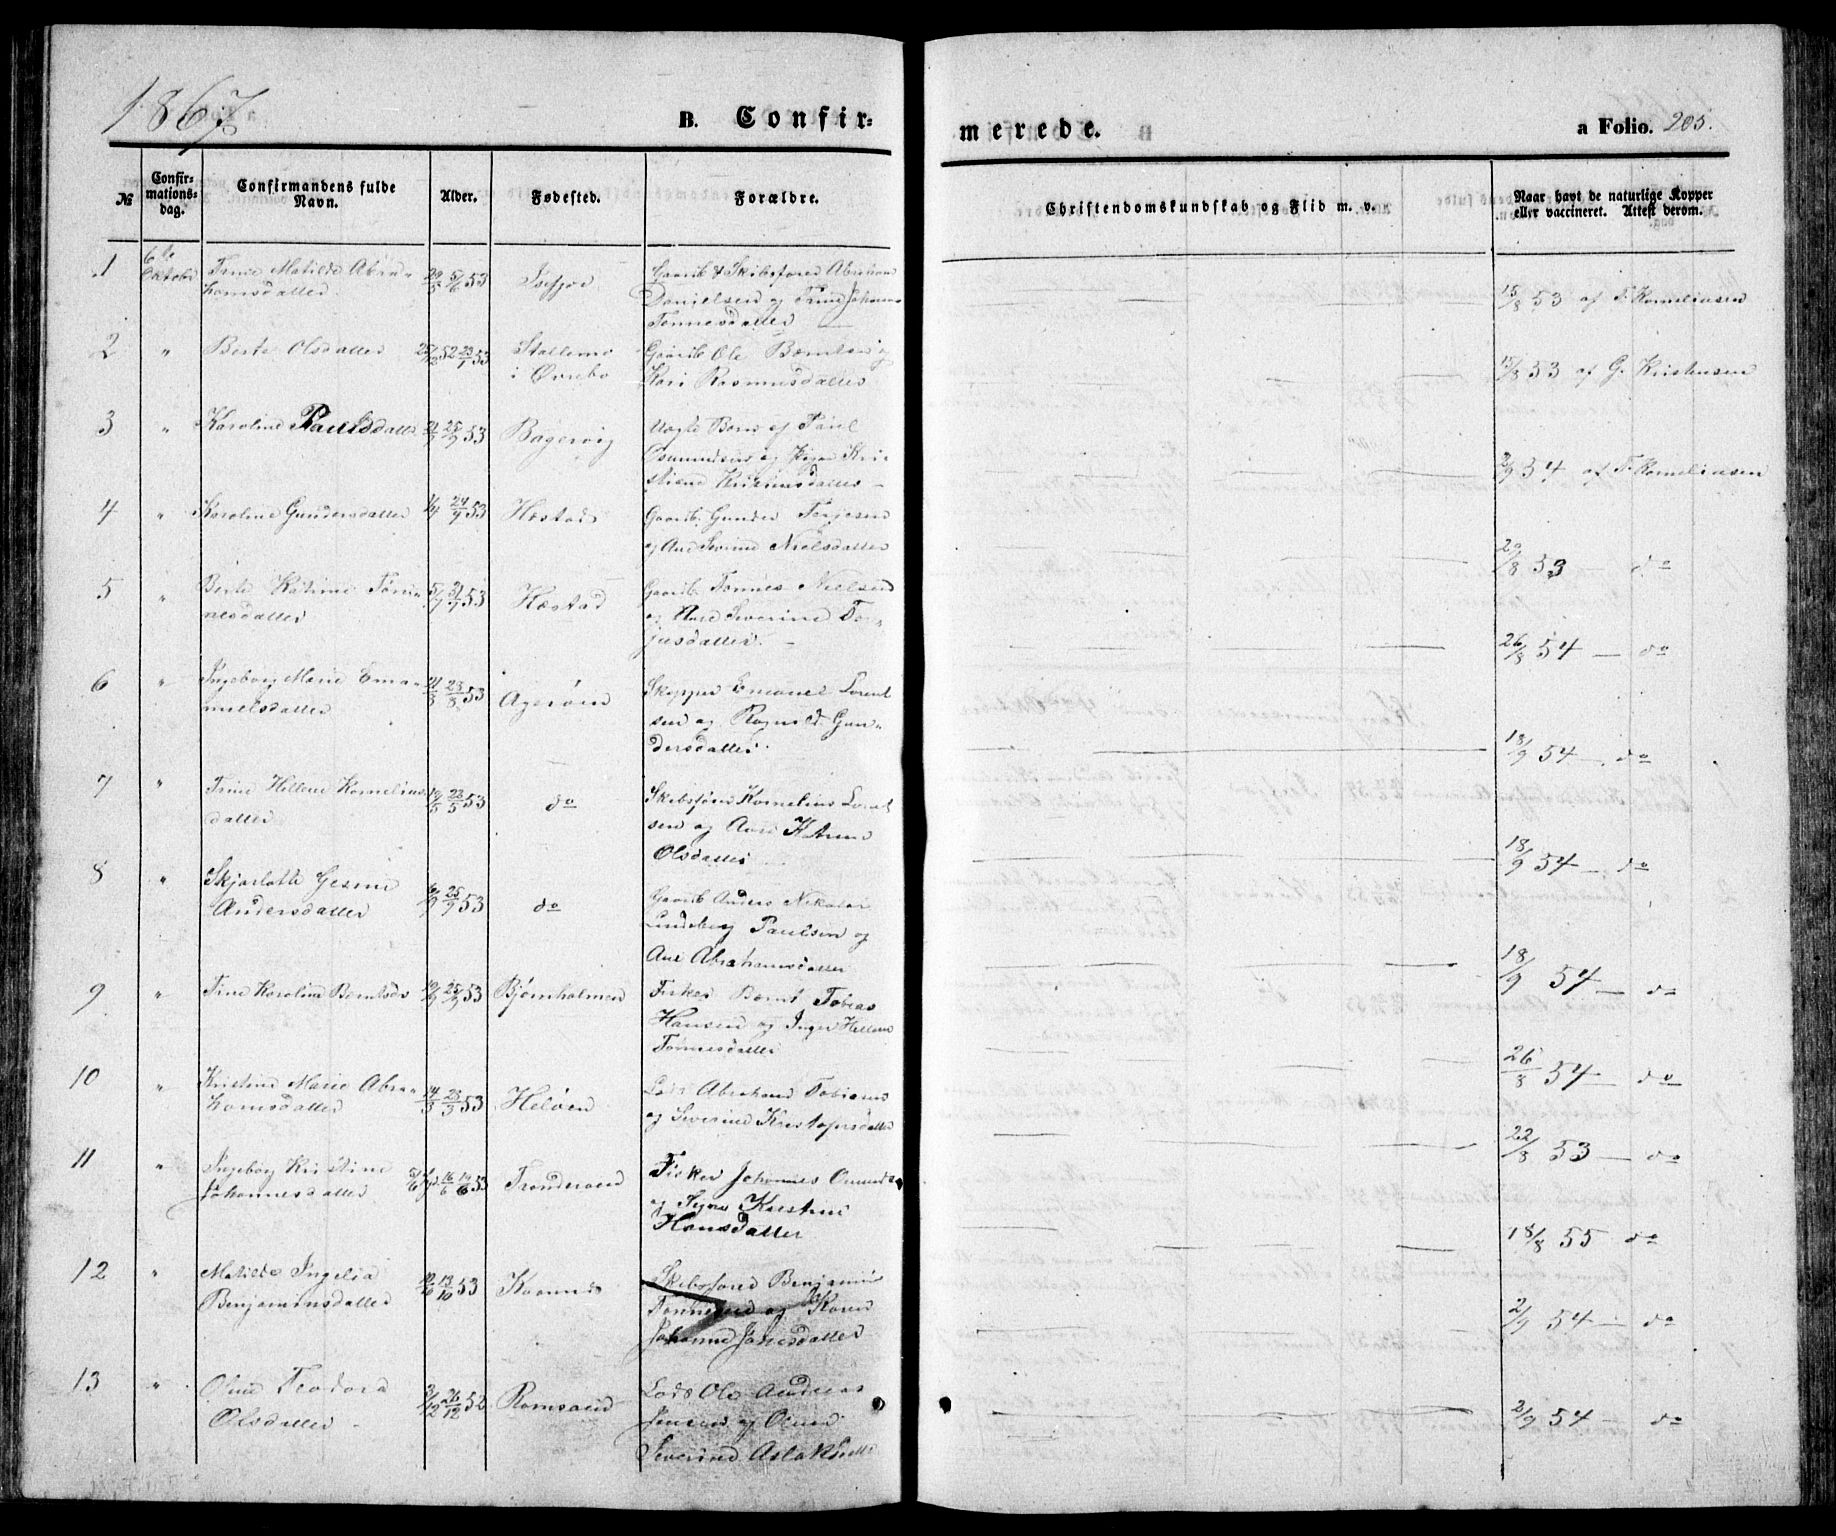 1867
B. Confir-
merede.
a Folio. 205.
№
Confir-
mations-
dag.
Confirmandens fulde
Navn.
Alder.
Fødested.
Forældre.
Christendomskundskab og Flid m. v.
Naar havt de naturlige Kopper
eller vaccineret. Attest derom.
1
6te
Oktobr
Trine Matilde Abra-
hamsdatter
29/5 5/6 53
Isefjær
Gaarb & Skibsfører Abraham
Danielsen og Trine Johanne
Tønnesdatter
15/8 53 af T. Korneliusen
2
"
Berte Olsdatter
25/12 52 23/1 53
Stallemo
i Øvrebø
Gaarb Ole Berntsen og
Kari Rasmusdatter
15/8 53 af G. Kristensen
3
"
Karoline Paulsdatter
25/9 53
Bagervig
Uægte Barn af Paul
Osmundsen og Pigen Kri-
stiane Kristensdatter
2/9 54 af T. Korneliusen
4
"
Karoline Gundersdatter
24/9 53
Hæstad
Gaarb. Gunder Terjesen
og Ane Severine Nielsdatter
22/8 53 — do
5
"
Berte Katrine Tøn-
nesdatter
5/7 31/7 53
Hæstad
Gaarb Tønnes Nielsen
og Ane Severine Ter-
jusdatter.
26/8 54 — do
6
"
Ingeborg Marie Ema-
nuelsdatter
28/8 53
Agerøen
Skipper Emanuel Lorent
sen og Ragnild Gun-
dersdatter
18/9 54 — do
7
"
Trine Hellene Kornelius-
datter
23/5 53
do
Skibsfører Kornelius Lorent
sen og Ane K
Olsdatter
18/9 54 — do
8
"
Skjarlotte Gesine
Andersdatter
25/9 53
do
Gaarb Anders Nikolai
Lindeberg Paulsen og
Ane Abrahamsdatter
18/9 54 — do
9
"
Tine Karoline Berntsdr
25/9 53
Bjørnholmen
Fisker Bernt Tobias
Hansen og Inger Hellene
Tønnesdatter
26/8 54 — do
10
"
Kristine Marie Abra-
hamsdatter
14/3 28/3 53
Heløen
Lods Abraham Tobiasen
og Severine Kristofersdatter
22/8 53 — do
11
"
Ingeborg Kristine
Johannesdatter
53
Trønderøen
Fisker Johannes Omunds
og Signe Kristine
Hansdatter
18/8 55 do
12
"
Matilde Ingelia
Benjaminsdatter
13/10 53
Kvannes
Skibsfører Benjamin
Tønnesen og Karen
Johanne Jansdatter
2/9 54 — do
13
"
Oline Teodora
Olsdatter
3/12 26/12 52
Ramsøen
Lods Ole Andreas
Jensen og Oline
Severine Aslaksdtr
2/9 54 — do